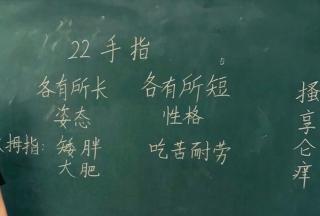 22 手指
各有所长 各有所短
姿态 性格
拇指: 矮胖 吃苦耐劳
大肥
搔
享
仑
痒